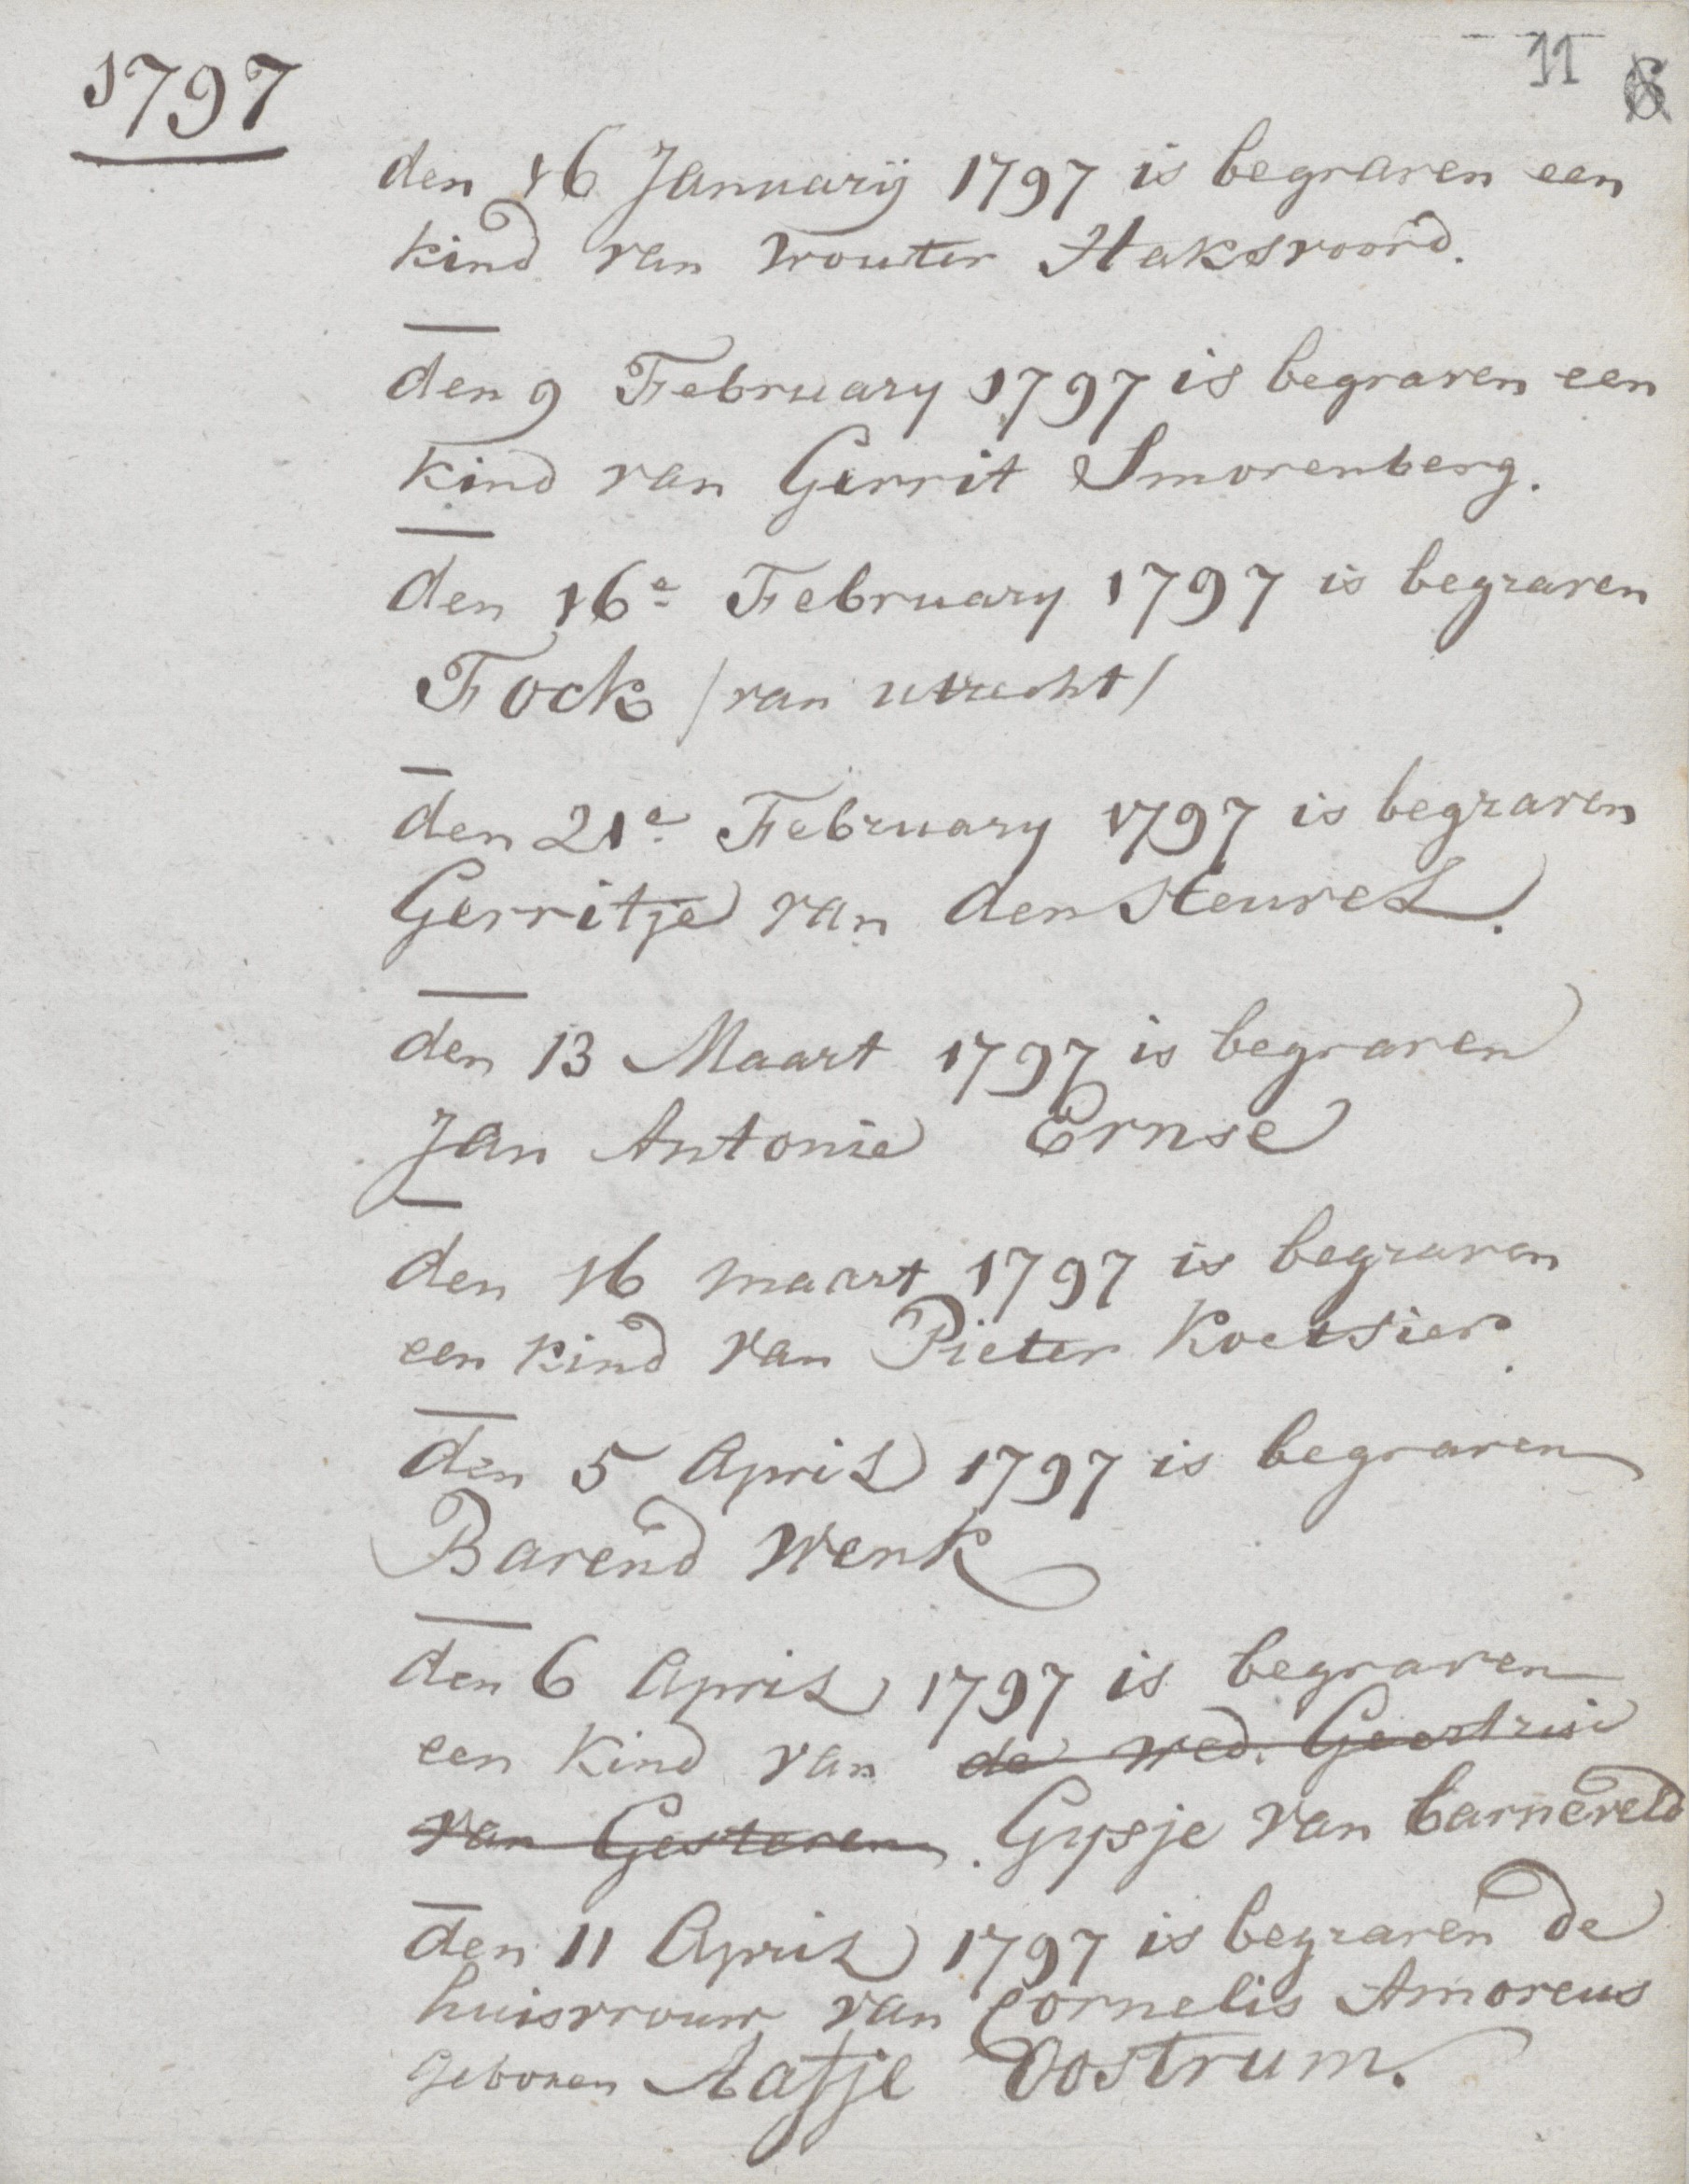 1797
11 6
den 16 Januarij 1797 is begraven een
kind van Wouter Haksvoord.
den 9 February 1797 is begraven een
kind van Gerrit Smorenberg.
den 16e February 1797 is begraven
Fock /van utrecht/
den 21e February 1797 is begraven
Gerritje van den Heuvel.
den 13 Maart 1797 is begraven
Jan Antonie Ernse
den 16 maart 1797 is begraven
een kind van Pieter Koetsier.
den 5 April 1797 is begraven
Barend Wenk
den 6 April 1797 is begraven
een kind van de wed. Geertrui
van Gesteren. Gysje van barneveld
den 11 April 1797 is begraven de
huisvrouw van Cornelis Amoreus
geboren Aafje Oostrum.